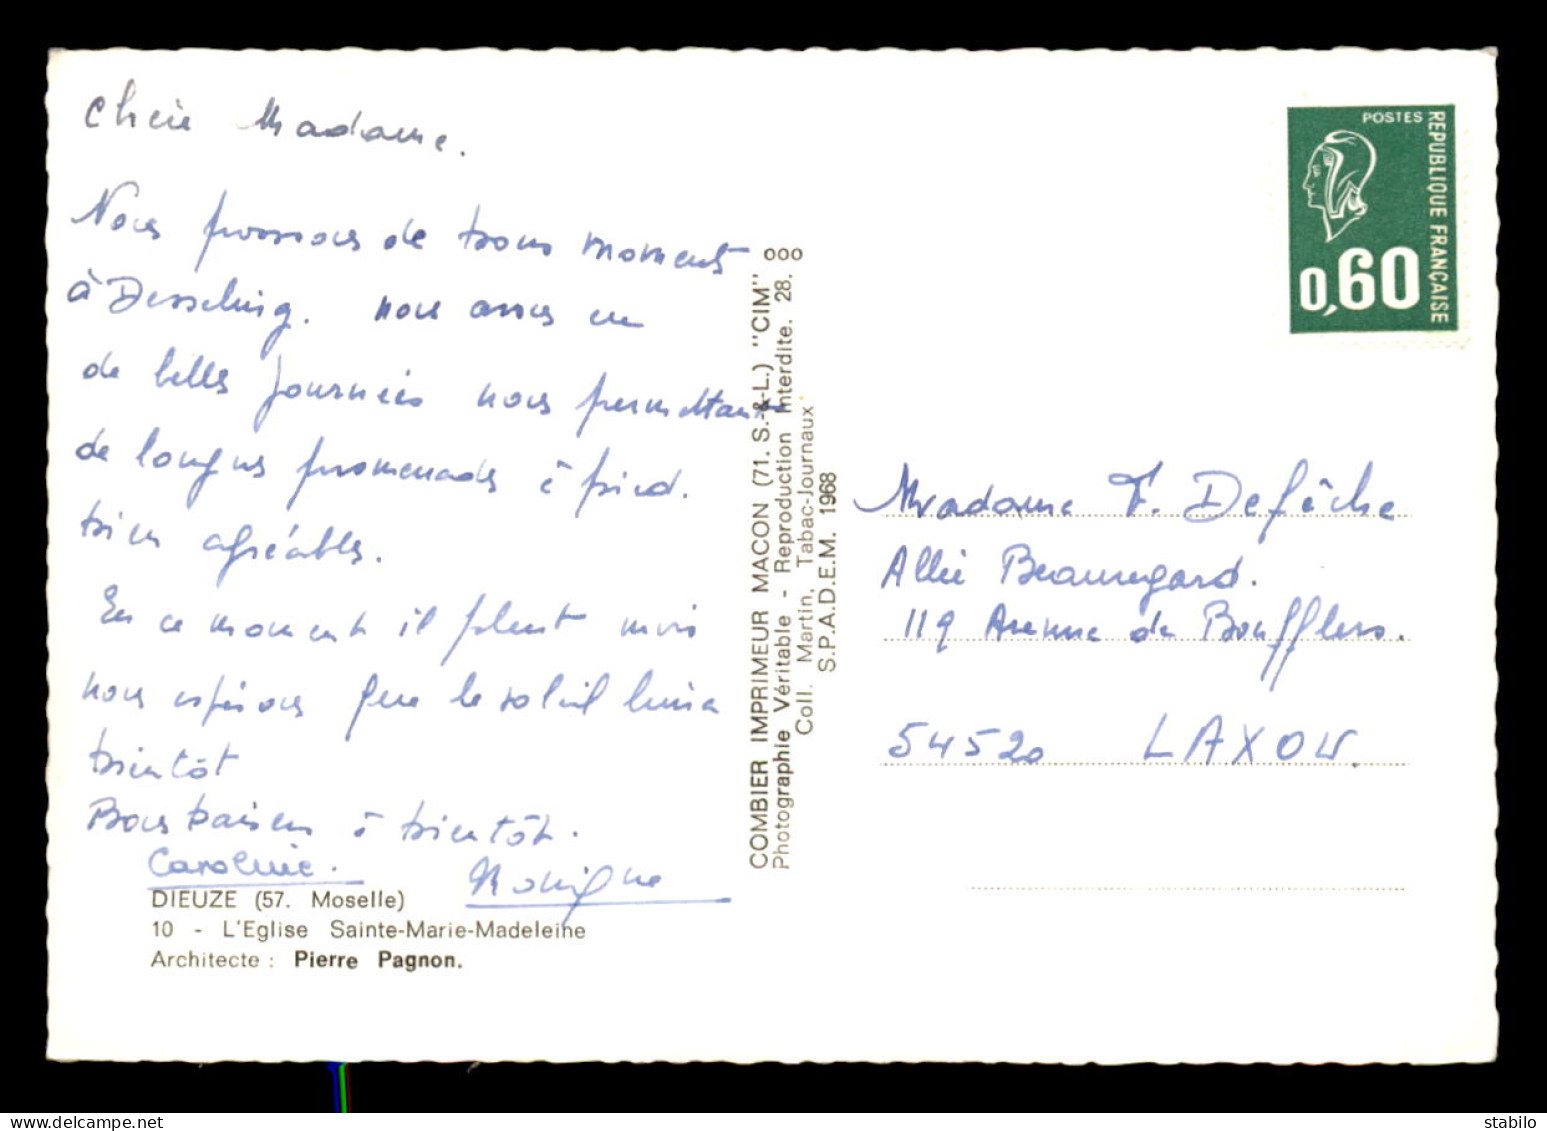 Chère Madame.
Nous passons de bons moments
à Desseling. nous avons eu
de belles journées nous permettant
de longues promenades à pied.
bien agréables.
En ce moment il pleut mais
nous espérons que le soleil luira
bientôt
Bons baisers à bientôt.
Caroline. Monique
DIEUZE (57. Moselle)
10 - L'Eglise Sainte-Marie-Madeleine
Architecte : Pierre Pagnon.
COMBIER IMPRIMEUR MACON (71. S.-&-L.) "CIM"
Photographie Véritable - Reproduction Interdite. 28. ooo
Coll. Martin, Tabac-Journaux
S.P.A.D.E.M. 1968
POSTES
REPUBLIQUE FRANÇAISE
0,60
Madame F. Defêche
Allée Beauregard.
119 Avenue de Boufflers.
54520 LAXOU.
stabilo